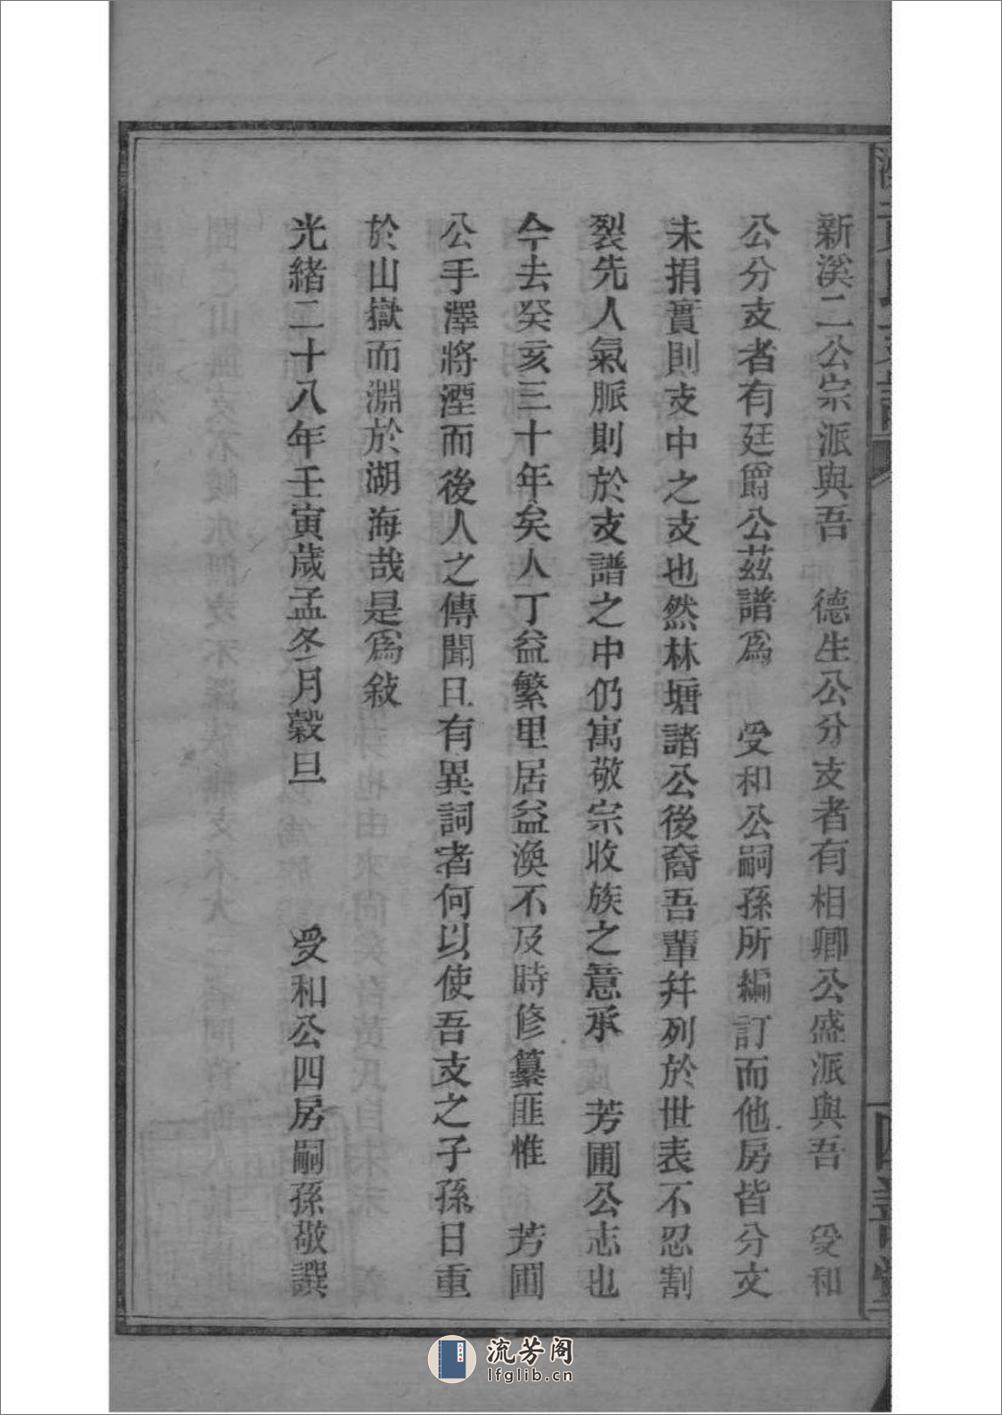 新溪二公宗派與吾　德生公分支者有相卿公盛派與吾　受和
公分支者有廷爵公茲譜爲　受和公嗣孫所編訂而他房皆分文
未捐實則支中之支也然林塘諸公後裔吾輩幷列於世表不忍割
裂先人氣脈則於支譜之中仍寓敬宗收族之意承　芳圃公志也
今去癸亥三十年矣人丁益繁里居益渙不及時修纂匪惟　芳圃
公手澤將湮而後人之傳聞且有異詞者何以使吾支之子孫日重
於山嶽而淵於湖海哉是爲敍
光緒二十八年壬寅歲孟冬月榖旦　受和公四房嗣孫敬譔
流芳阁
lfglib.cn